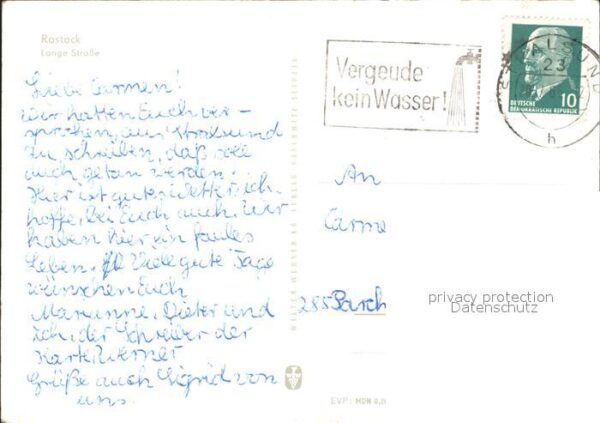 Rostock
Lange Straße
Liebe Carmen!
Wir hatten Euch ver-
sprochen, aus Stralsund
zu schreiben, daß soll
auch getan werden.
Hier ist gutes Wetter, ich
hoffe, bei Euch auch. Wir
haben hier ein faules
Leben. Viele gute Tage
wünschen Euch
Marianne, Dieter und
ich, der Schreiber der
Karte Werner
Grüße auch Sigrid von
uns.
Vergeude
kein Wasser!
STRALSUND
23
h
10
DEUTSCHE
DEMOKRATISCHE REPUBLIK
An
Carme
285 Parch
privacy protection
Datenschutz
EVP: MDN 0,21